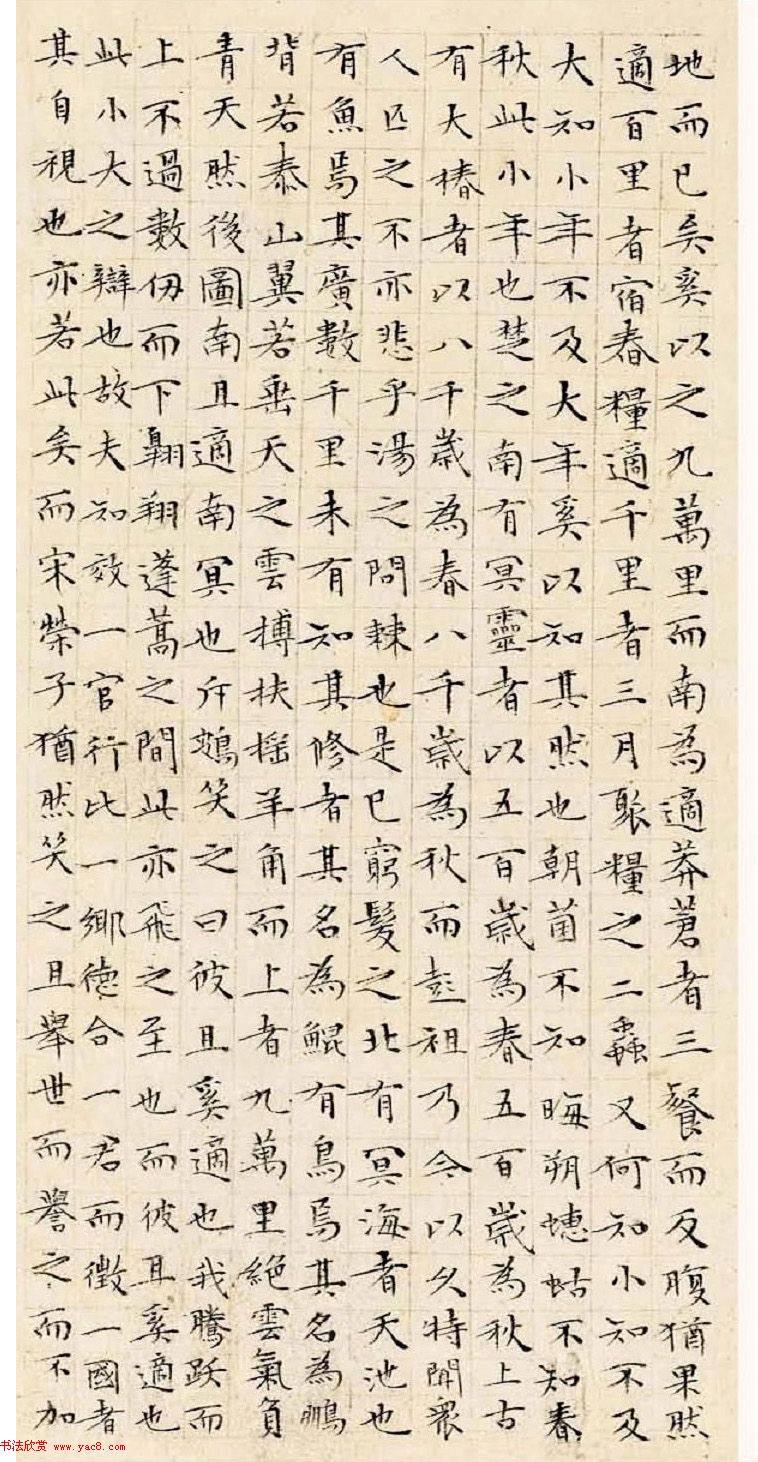 地而已矣奚以之九萬里而南為適莽蒼者三餐而反腹猶果然
適百里者宿舂糧適千里者三月聚糧之二蟲又何知小知不及
大知小年不及大年奚以知其然也朝菌不知晦朔蟪蛄不知春
秋此小年也楚之南有冥靈者以五百歲為春五百歲為秋上古
有大椿者以八千歲為春八千歲為秋而彭祖乃今以久特聞眾
人匹之不亦悲乎湯之問棘也是已窮髮之北有冥海者天池也
有魚焉其廣數千里未有知其修者其名為鯤有鳥焉其名為鵬
背若泰山翼若垂天之雲摶扶搖羊角而上者九萬里絕雲氣負
青天然後圖南且適南冥也斥鴳笑之曰彼且奚適也我騰躍而
上不過數仞而下翱翔蓬蒿之間此亦飛之至也而彼且奚適也
此小大之辯也故夫知效一官行比一鄉德合一君而徵一國者
其自視也亦若此矣而宋榮子猶然笑之且舉世而譽之而不加
书法欣赏 www.yac8.com